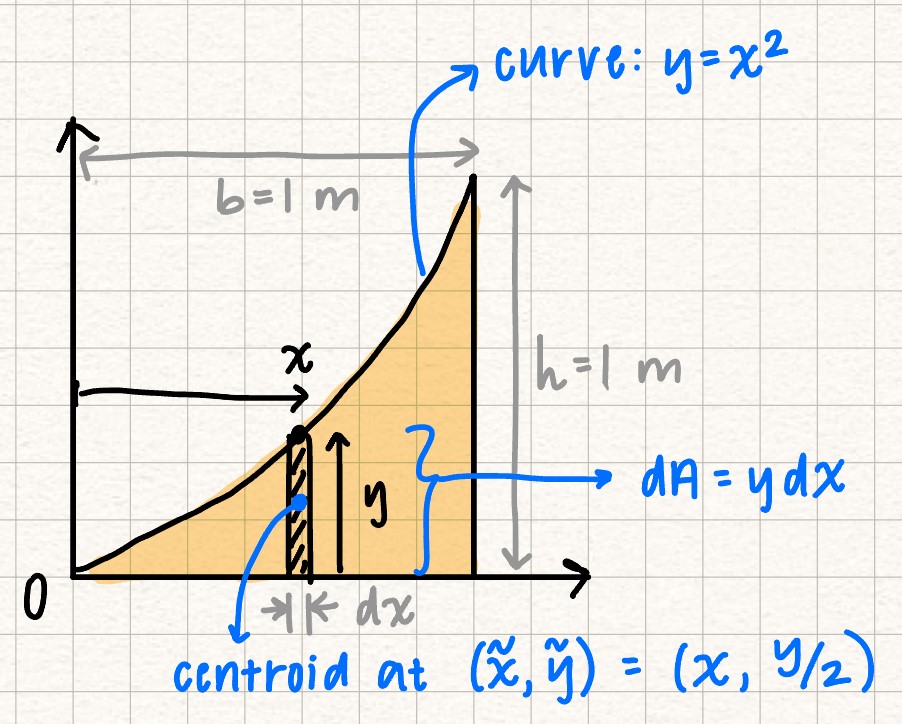 curve: y=x²
b=1 m
x
h=1 m
dA = y dx
y
0
dx
centroid at (x̃, ỹ) = (x, y/2)